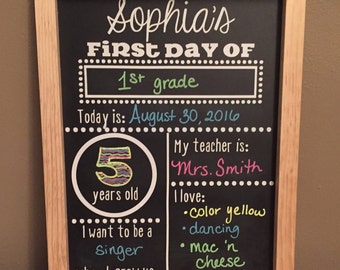 Sophia's
First Day of
1st grade
Today is: August 30, 2016
5
years old
I want to be a
singer
My teacher is:
Mrs. Smith
I love:
• color yellow
• dancing
• mac 'n
cheese